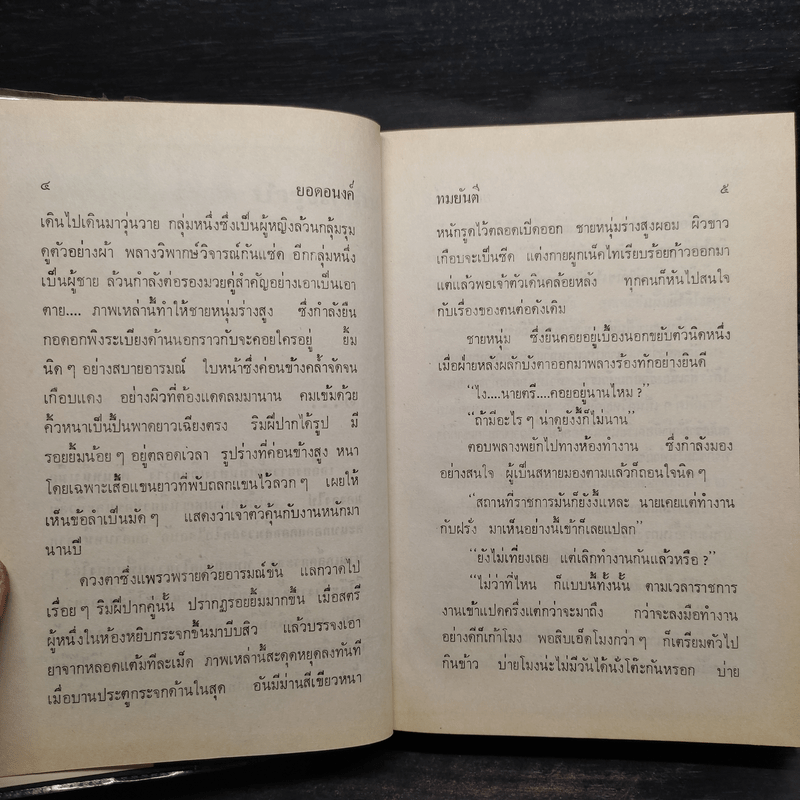 ๔ ยอดอนงค์
เดินไปเดินมาวุ่นวาย กลุ่มหนึ่งซึ่งเป็นผู้หญิงล้วนกลุ้มรุม
ดูตัวอย่างผ้า พลางวิพากษ์วิจารณ์กันแซ่ด อีกกลุ่มหนึ่ง
เป็นผู้ชาย ล้วนกำลังต่อรองมวยคู่สำคัญอย่างเอาเป็นเอา
ตาย.... ภาพเหล่านี้ทำให้ชายหนุ่มร่างสูง ซึ่งกำลังยืน
กอดอกพิงระเบียงด้านนอกราวกับจะคอยใครอยู่ ยิ้ม
นิด ๆ อย่างสบายอารมณ์ ใบหน้าซึ่งค่อนข้างคล้ำจัดจน
เกือบแดง อย่างผิวที่ต้องแดดลมมานาน คมเข้มด้วย
คิ้วหนาเป็นปื้นพาดยาวเฉียงตรง ริมฝีปากได้รูป มี
รอยยิ้มน้อย ๆ อยู่ตลอดเวลา รูปร่างที่ค่อนข้างสูง หนา
โดยเฉพาะเสื้อแขนยาวที่พับถลกแขนไว้ลวก ๆ เผยให้
เห็นข้อลำเป็นมัด ๆ แสดงว่าเจ้าตัวคุ้นกับงานหนักมา
นานปี
ดวงตาซึ่งแพรวพรายด้วยอารมณ์ขัน แลกวาดไป
เรื่อย ๆ ริมฝีปากคู่นั้น ปรากฏรอยยิ้มมากขึ้น เมื่อสตรี
ผู้หนึ่งในห้องหยิบกระจกขึ้นมาบีบสิว แล้วบรรจงเอา
ยาจากหลอดแต้มทีละเม็ด ภาพเหล่านี้สะดุดหยุดลงทันที
เมื่อบานประตูกระจกด้านในสุด อันมีม่านสีเขียวหนา
ทมยันตี ๕
หนักรูดไว้ตลอดเปิดออก ชายหนุ่มร่างสูงผอม ผิวขาว
เกือบจะเป็นซีด แต่งกายผูกเน็คไทเรียบร้อยก้าวออกมา
แต่แล้วพอเจ้าตัวเดินคล้อยหลัง ทุกคนก็หันไปสนใจ
กับเรื่องของตนต่อดังเดิม
ชายหนุ่ม ซึ่งยืนคอยอยู่เบื้องนอกขยับตัวนิดหนึ่ง
เมื่อฝ่ายหลังผลักบังตาออกมาพลางร้องทักอย่างยินดี
“ไง....นายตรี....คอยอยู่นานไหม ?”
“ถ้ามีอะไร ๆ น่าดูยังงี้ก็ไม่นาน”
ตอบพลางพยักไปทางห้องทำงาน ซึ่งกำลังมอง
อย่างสนใจ ผู้เป็นสหายมองตามแล้วก็ถอนใจนิด ๆ
“สถานที่ราชการมันก็ยังงี้แหละ นายเคยแต่ทำงาน
กับฝรั่ง มาเห็นอย่างนี้เข้าก็เลยแปลก”
“ยังไม่เที่ยงเลย แต่เลิกทำงานกันแล้วหรือ ?”
“ไม่ว่าที่ไหน ก็แบบนี้ทั้งนั้น ตามเวลาราชการ
งานเข้าแปดครึ่งแต่กว่าจะมาถึง กว่าจะลงมือทำงาน
อย่างดีก็เก้าโมง พอสิบเอ็ดโมงกว่า ๆ ก็เตรียมตัวไป
กินข้าว บ่ายโมงน่ะไม่มีวันได้นั่งโต๊ะกันหรอก บ่าย